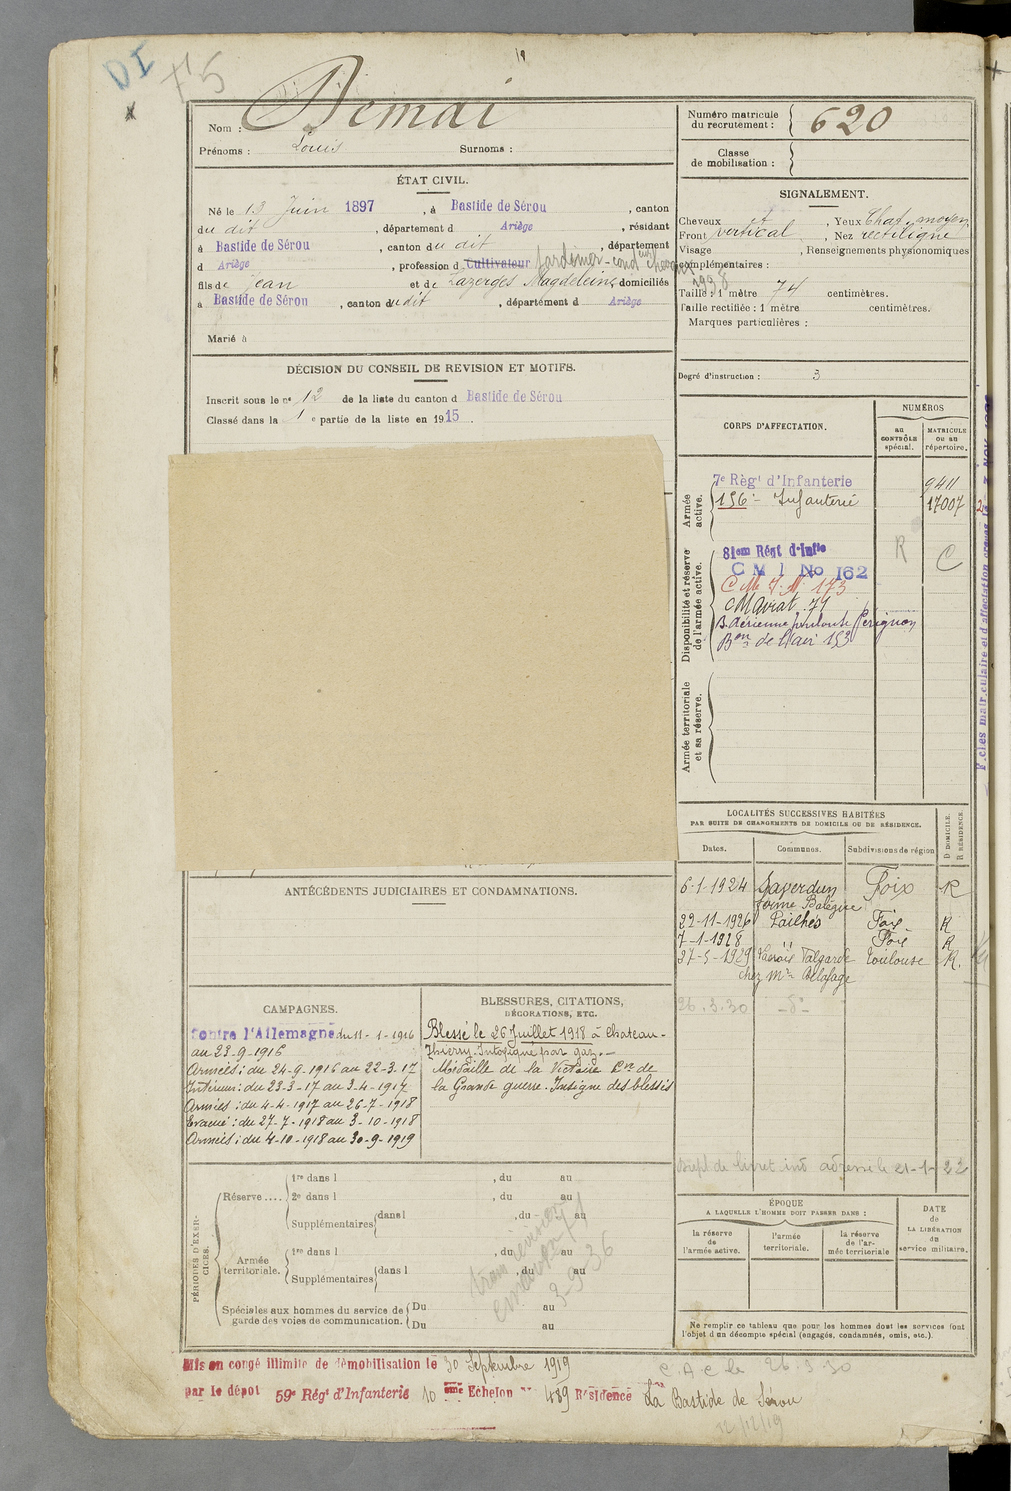 DI
+ 5
Nom : Demai
Prénoms : Louis Surnoms :
Numéro matricule du recrutement : 620
Classe de mobilisation :
ÉTAT CIVIL.
Né le 13 Juin 1897, à Bastide de Sérou, canton
du dit, département d Ariège, résidant
à Bastide de Sérou, canton du dit, département
d Ariège, profession d Cultivateur Jardinier - condeur chevaux
fils de Jean et de Lazerges Magdeleine domiciliés
à Bastide de Sérou, canton du dit, département d Ariège
Marié à
SIGNALEMENT.
Cheveux , Yeux Chat. moyen
Front vertical, Nez rectiligne
Visage , Renseignements physionomiques
complémentaires :
1998
Taille : 1 mètre 74 centimètres.
Taille rectifiée : 1 mètre centimètres.
Marques particulières :
Degré d'instruction : 3
DÉCISION DU CONSEIL DE REVISION ET MOTIFS.
Inscrit sous le n° 12 de la liste du canton d Bastide de Sérou
Classé dans la 1e partie de la liste en 1915.
CORPS D'AFFECTATION.
NUMÉROS
au CONTRÔLE spécial.
MATRICULE ou au répertoire.
Armée active.
7e Régt d'Infanterie 9411
156e Infanterie 17007
Disponibilité et réserve de l'armée active.
81em Régt d'Infie
R C
C M I No 162
C M I N° 173
B. Aérienne Toulouse Pérignon
Bon de l'air 153
Armée territoriale et sa réserve.
LOCALITÉS SUCCESSIVES HABITÉES
PAR SUITE DE CHANGEMENTS DE DOMICILE OU DE RÉSIDENCE.
Dates. Communes. Subdivisions de région D DOMICILE. R RÉSIDENCE.
6-1-1924 Saverdun Foix R
22-11-1926 Pailhès Foix R
7-1-1928 " Foix R
27-5-1929 Toulouse R.
chez Mr
26.3.30 -d°-
ANTÉCÉDENTS JUDICIAIRES ET CONDAMNATIONS.
CAMPAGNES.
Contre l'Allemagne du 11-1-1916
au 23-9-1916
Armées : du 24-9-1916 au 22-3-17
Intérieur : du 23-3-17 au 3-4-1917
Armées : du 4-4-1917 au 26-7-1918
Evacué : du 27-7-1918 au 3-10-1918
Armées : du 4-10-1918 au 30-9-1919
BLESSURES, CITATIONS, DÉCORATIONS, ETC.
Blessé le 26 Juillet 1918 à Chateau-
Thierry. Intoxiqué par gaz.
Médaille de la Victoire Cve de
la Grande guerre. Insigne des blessés
Dupl. de livret ind adressé le 21-1-22
PÉRIODES D'EXERCICES.
Réserve .... 1re dans l , du au
2e dans l , du au
Supplémentaires dans l , du au
Armée territoriale. 1re dans l , du au
Supplémentaires dans l , du au
Spéciales aux hommes du service de garde des voies de communication. Du au
Du au
3-9-36
ÉPOQUE
A LAQUELLE L'HOMME DOIT PASSER DANS :
la réserve de l'armée active. l'armée territoriale. la réserve de l'armée territoriale
DATE de LA LIBÉRATION du service militaire.
Ne remplir ce tableau que pour les hommes dont les services font
l'objet d'un décompte spécial (engagés, condamnés, omis, etc.).
Mis en congé illimité de démobilisation le 30 Septembre 1919
par le dépôt 59e Régt d'Infanterie 10 ème Echelon n° 489 Résidence La Bastide de Sérou
C.A.C le 26.3.30
12/12/19